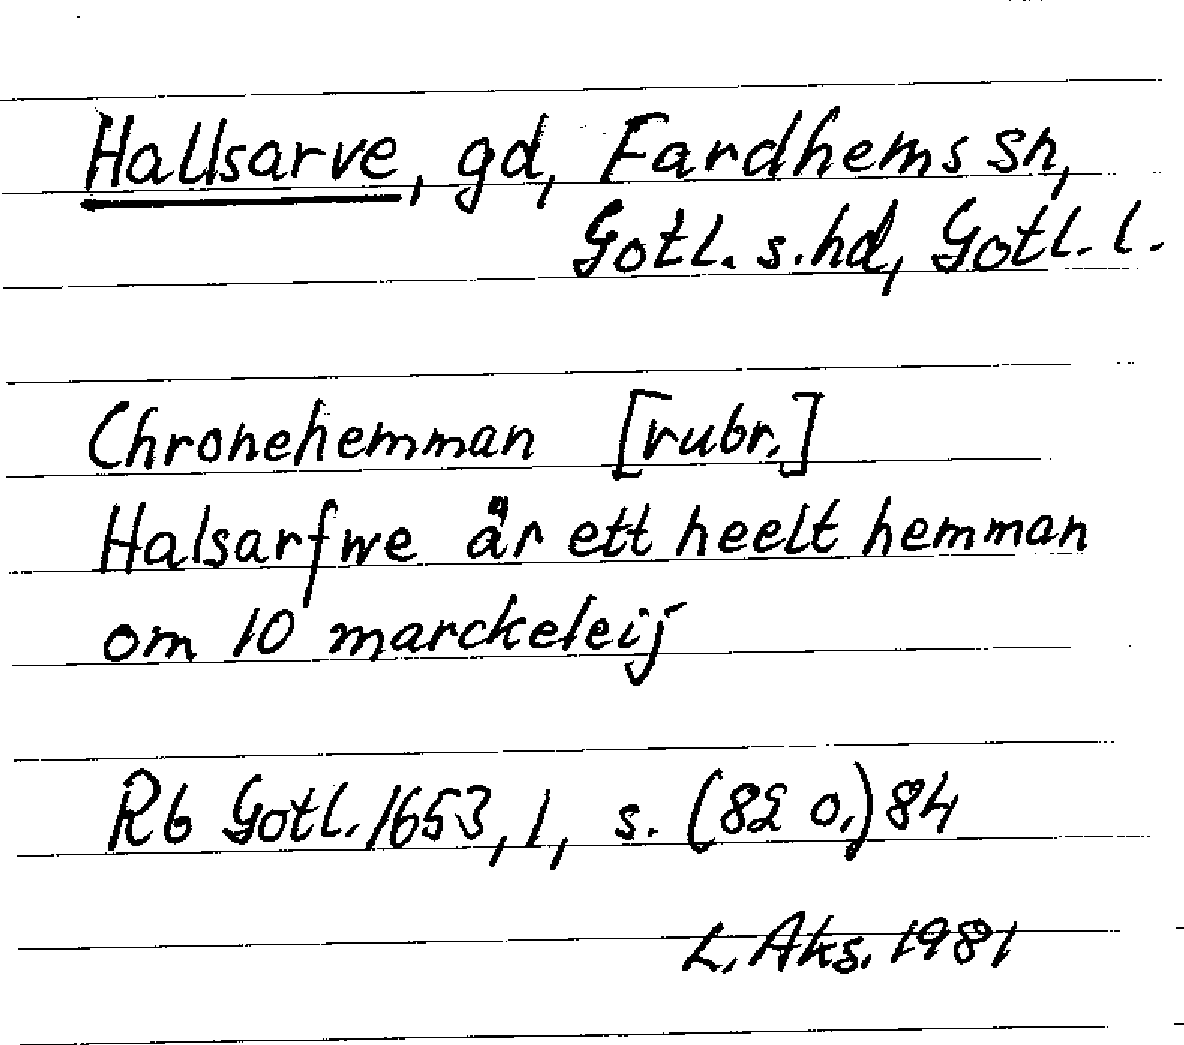 Hallsarve, gd, Fardhems sn,
Gotl. s. hd, Gotl. l.
Chronehemman [rubr.]
Halsarfwe är ett heelt hemman
om 10 marckeleij
Rb Gotl. 1653, 1, s. (82 o.) 84
L. Aks. 1981